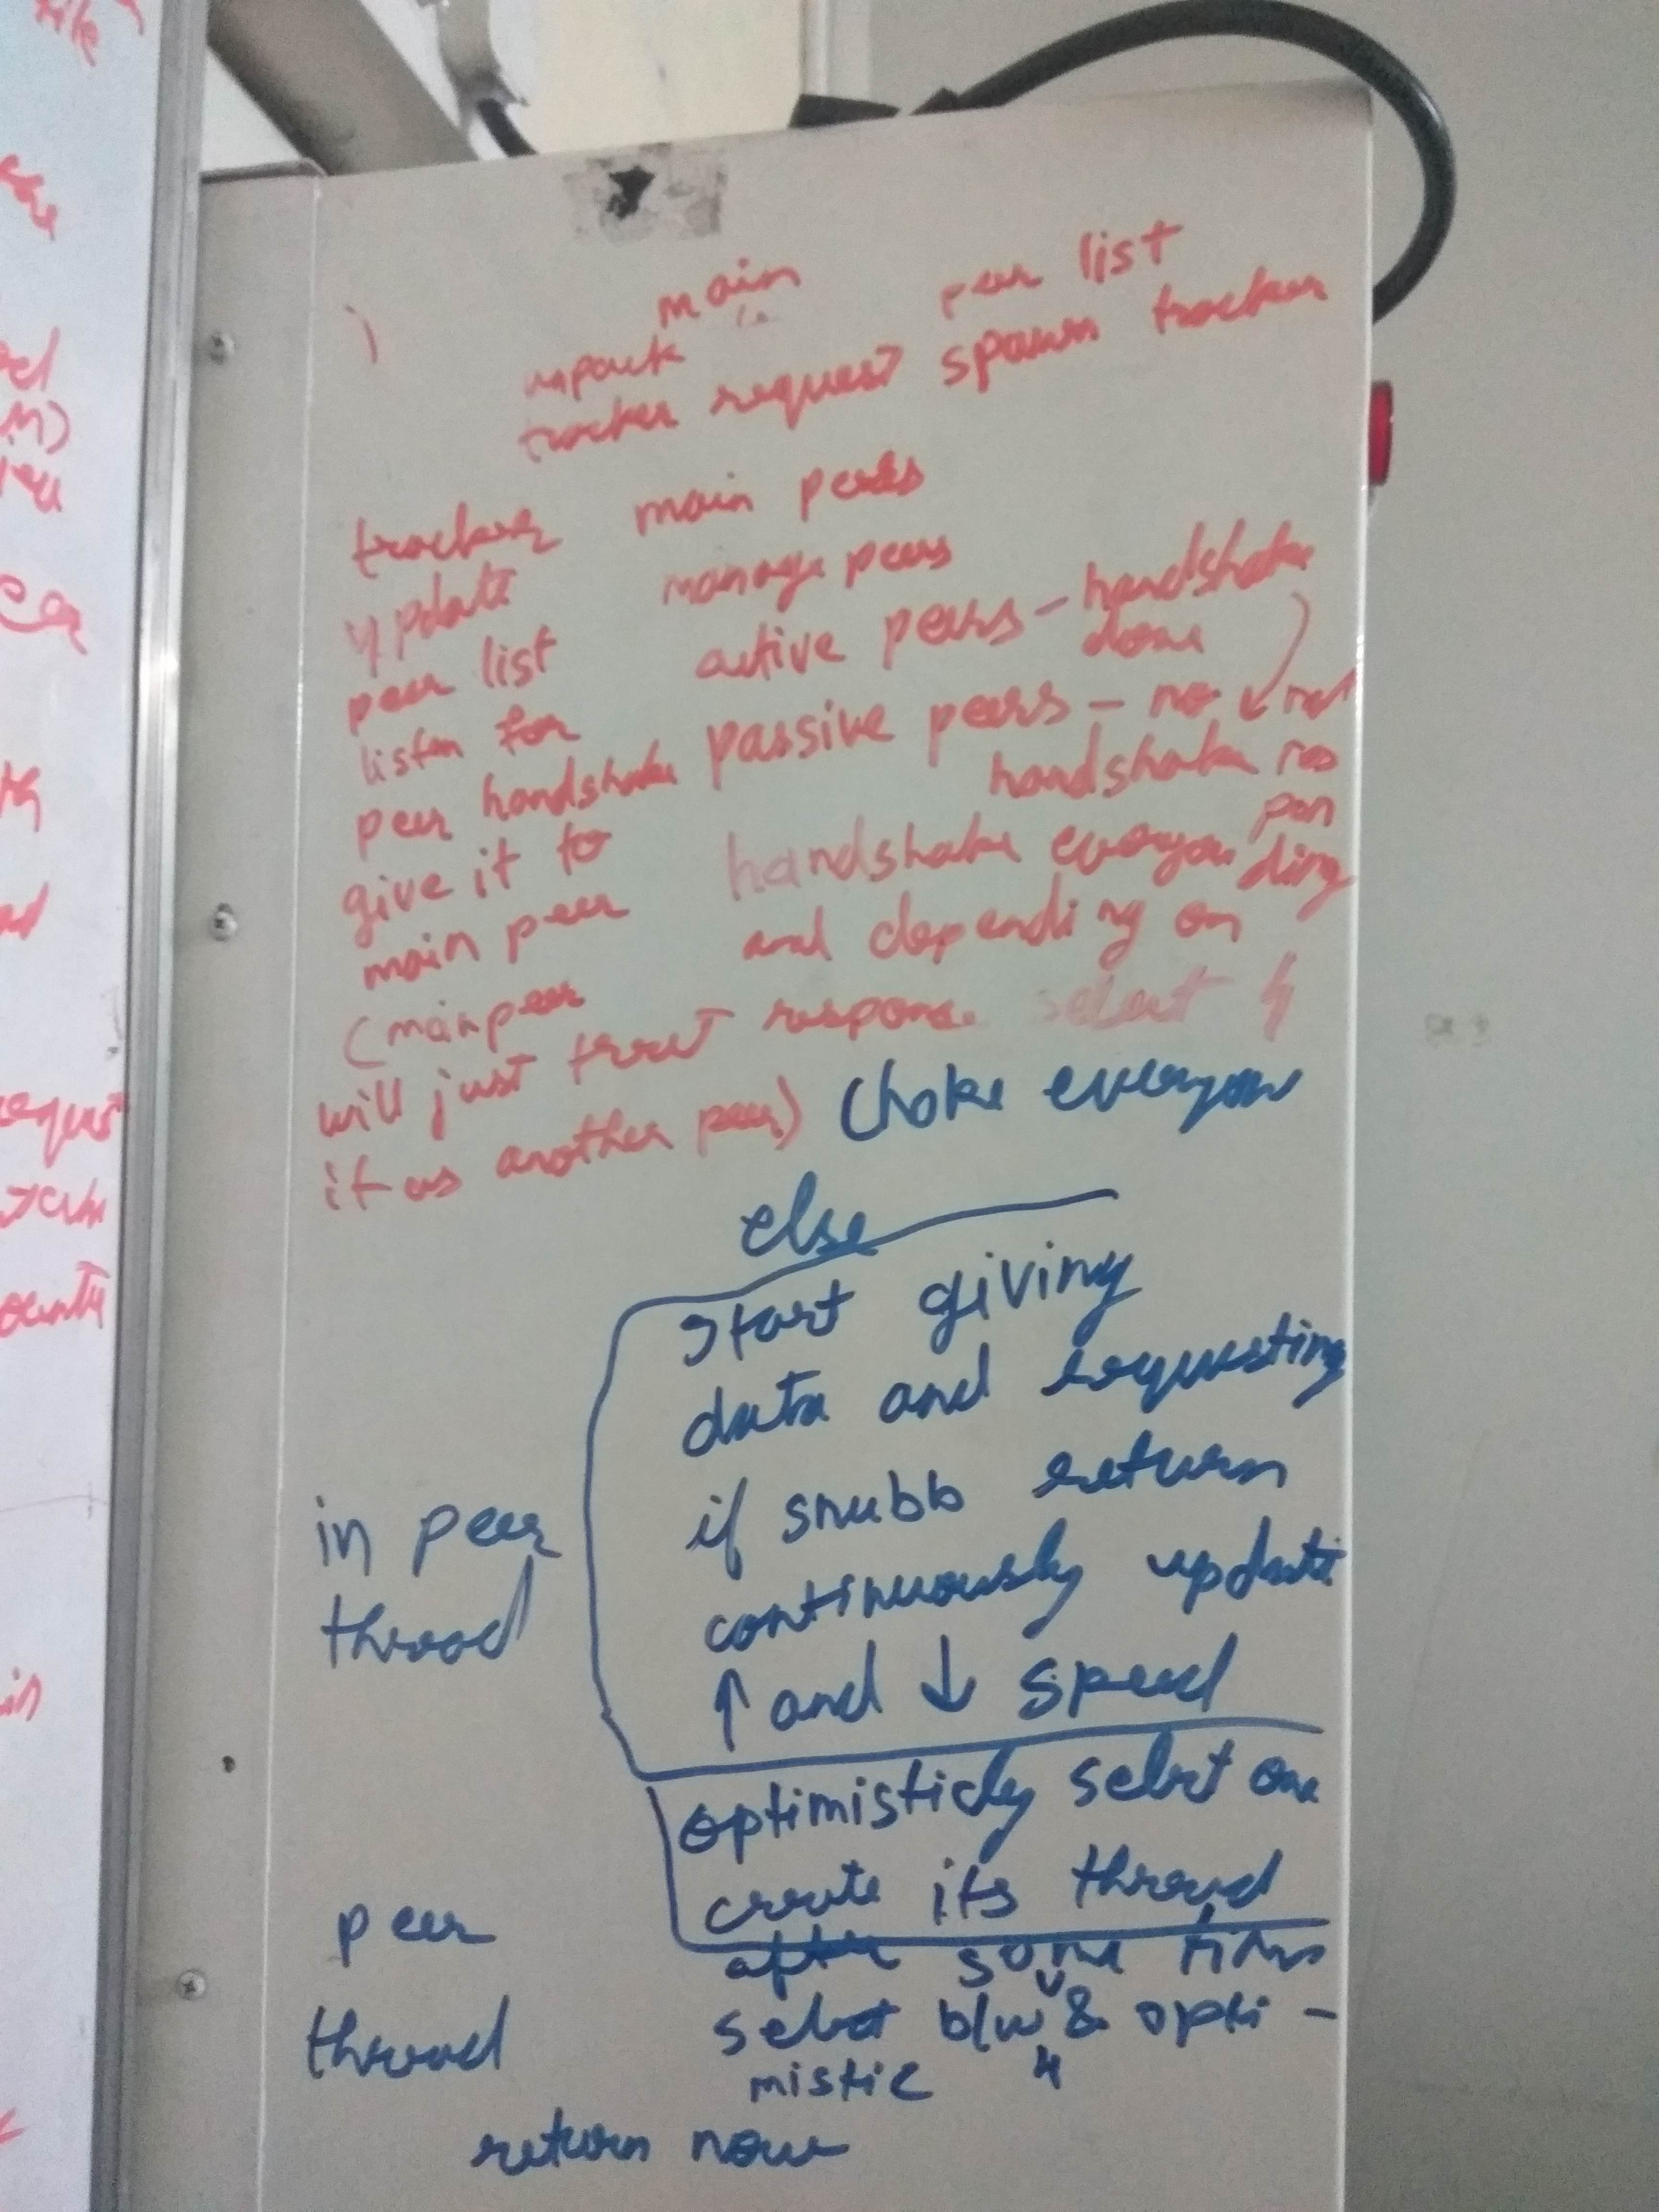 main
unpack peer list
tracker request spawn tracker
tracker
update
peer list
listen for
peer handshake
give it to
main peer
(main peer
will just treat
it as another peer)
main peers
manage peers
active peers - handshake
done
passive peers - no ↙ not
handshake res
pon
ding
handshake everyone
and depending on
response select 4
Choke everyone
else
start giving
data and requesting
if snubb return
continuously update
↑ and ↓ speed
in peer
thread
optimisticly select one
create its thread
after some times
select b/w 4 & opti -
mistic
peer
thread
return now
in